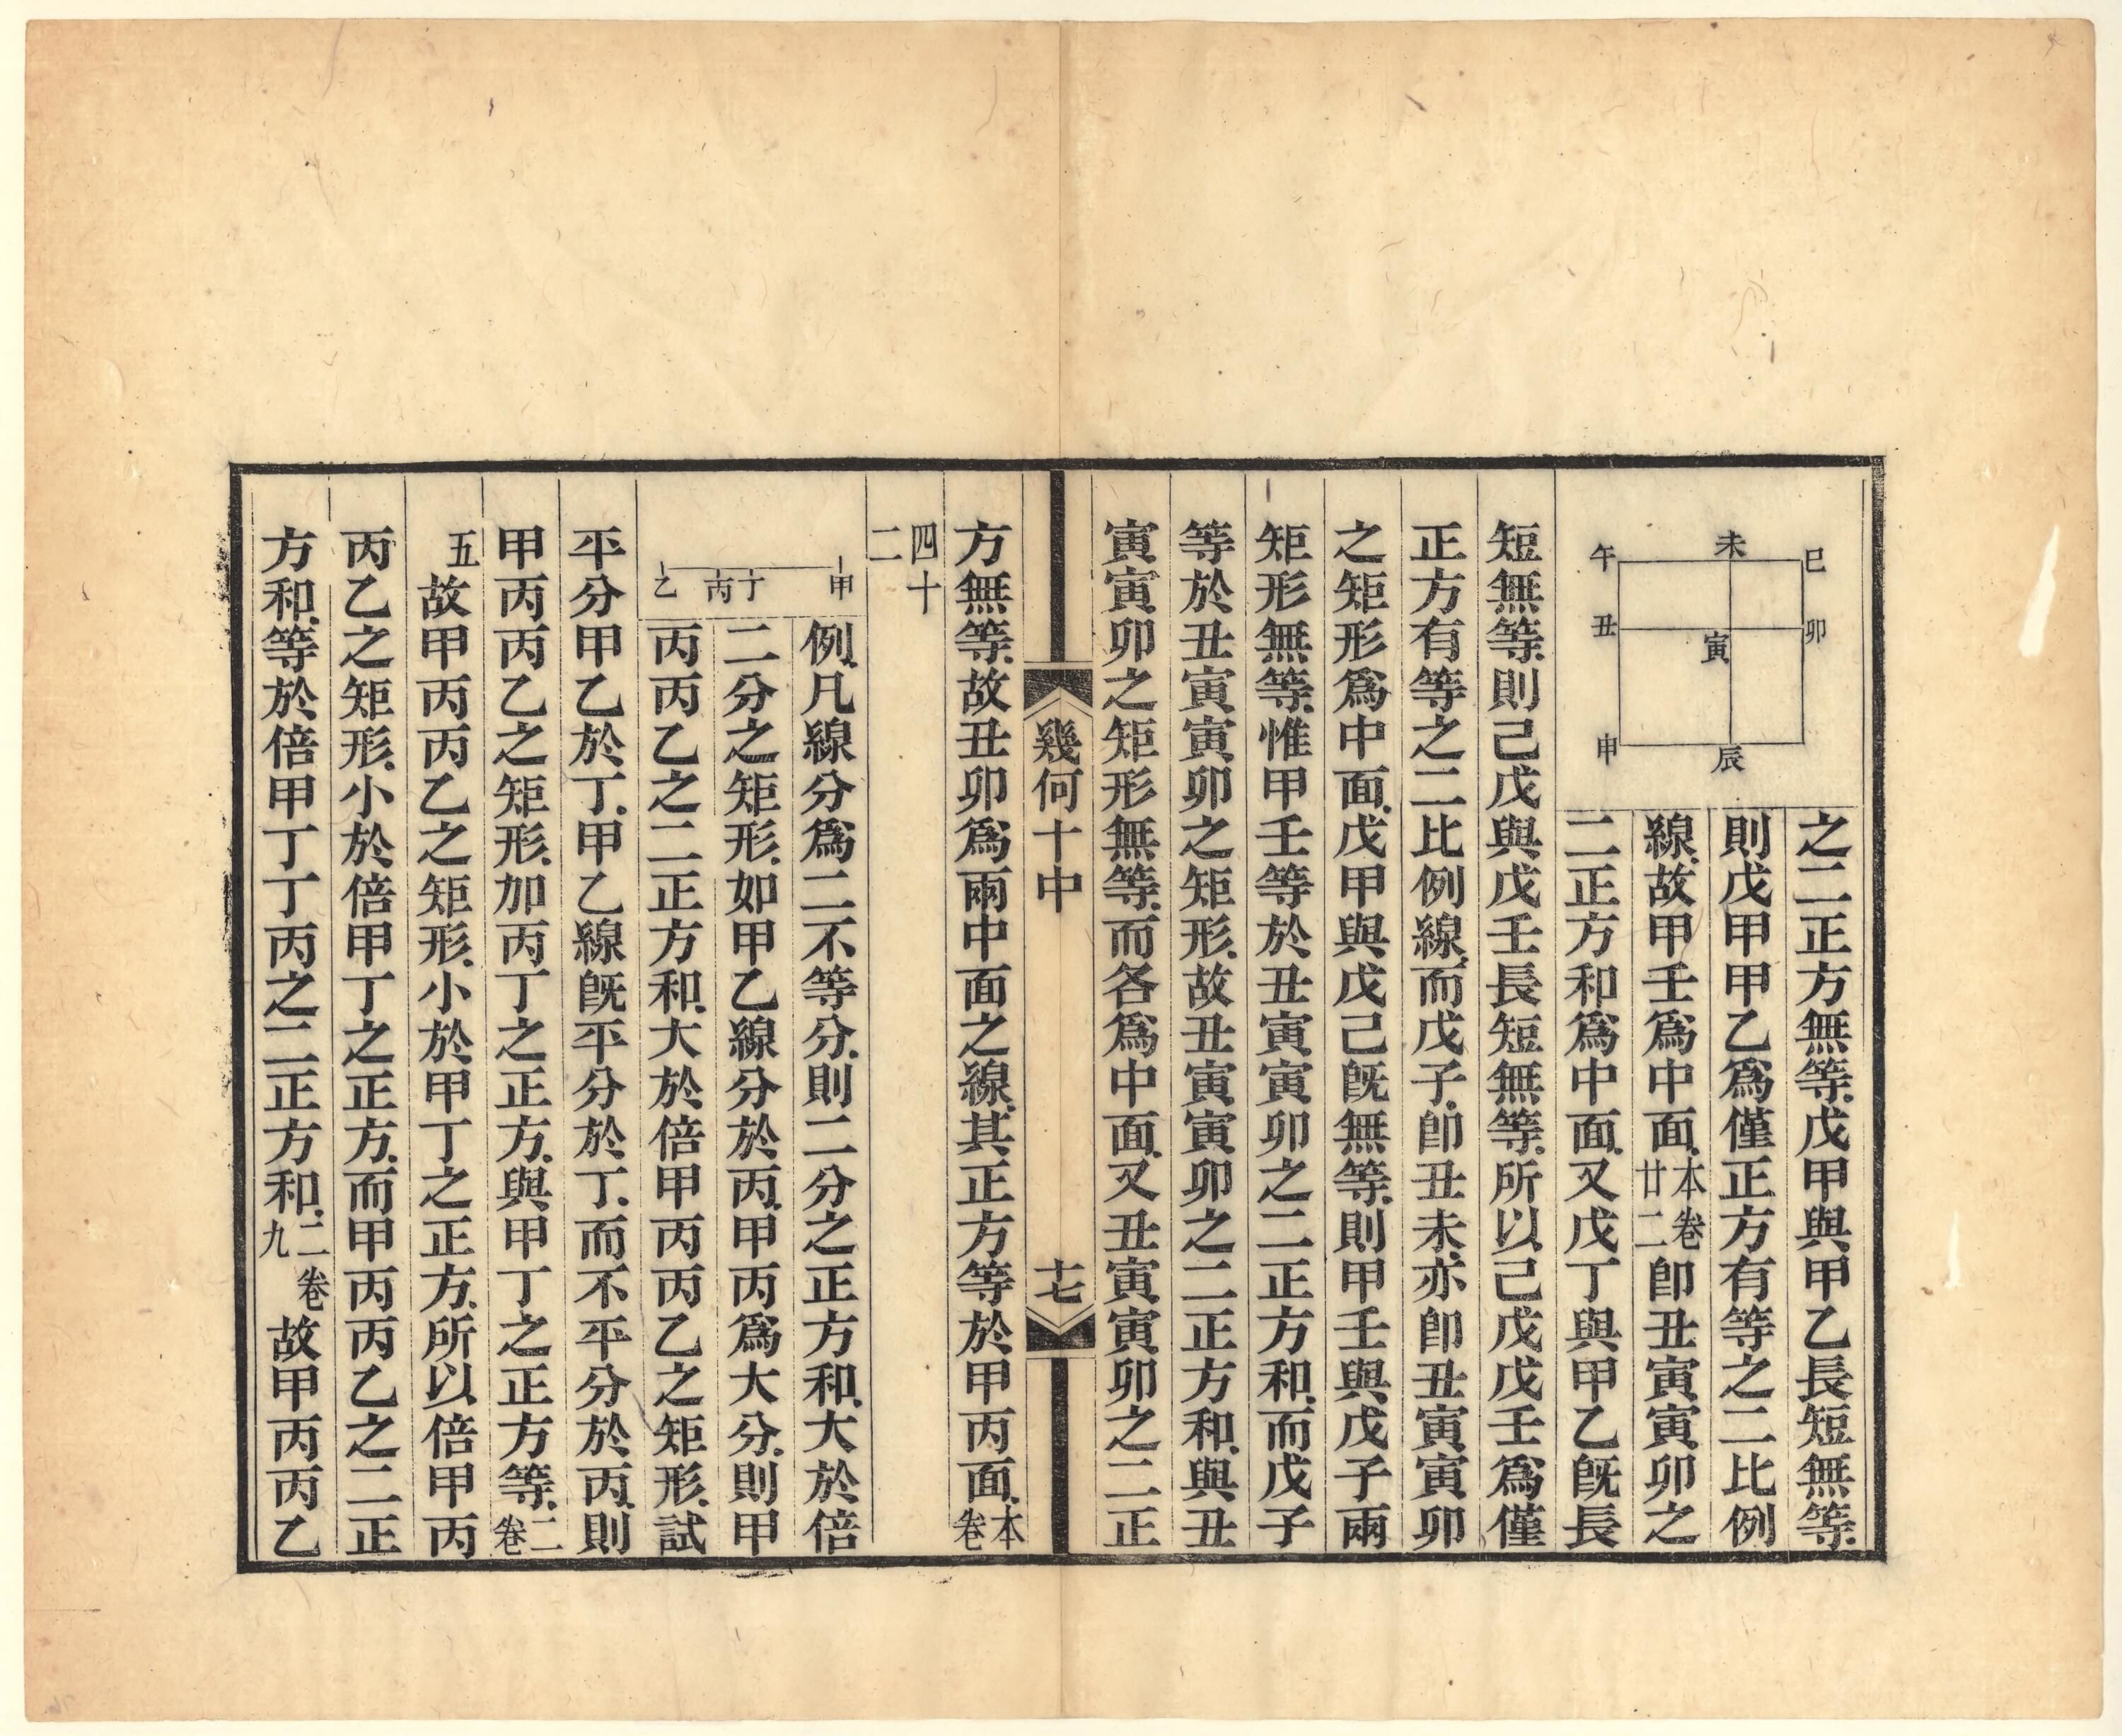 巳
未
午
卯
寅
丑
辰
申
之二正方無等戊甲與甲乙長短無等
則戊甲甲乙爲僅正方有等之二比例
線故甲壬爲中面本卷廿二卽丑寅寅卯之
二正方和爲中面又戊丁與甲乙旣長
短無等則己戊與戊壬長短無等所以己戊戊壬爲僅
正方有等之二比例線而戊子卽丑未亦卽丑寅寅卯
之矩形爲中面戊甲與戊己旣無等則甲壬與戊子兩
矩形無等惟甲壬等於丑寅寅卯之二正方和而戊子
等於丑寅寅卯之矩形故丑寅寅卯之二正方和與丑
寅寅卯之矩形無等而各爲中面又丑寅寅卯之二正
幾何十中
十七
方無等故丑卯爲兩中面之線其正方等於甲丙面本卷
四十二
甲
丁
丙
乙
例凡線分爲二不等分則二分之正方和大於倍
二分之矩形如甲乙線分於丙甲丙爲大分則甲
丙丙乙之二正方和大於倍甲丙丙乙之矩形試
平分甲乙於丁甲乙線旣平分於丁而不平分於丙則
甲丙丙乙之矩形加丙丁之正方與甲丁之正方等二卷
五故甲丙丙乙之矩形小於甲丁之正方所以倍甲丙
丙乙之矩形小於倍甲丁之正方而甲丙丙乙之二正
方和等於倍甲丁丁丙之二正方和二卷九故甲丙丙乙